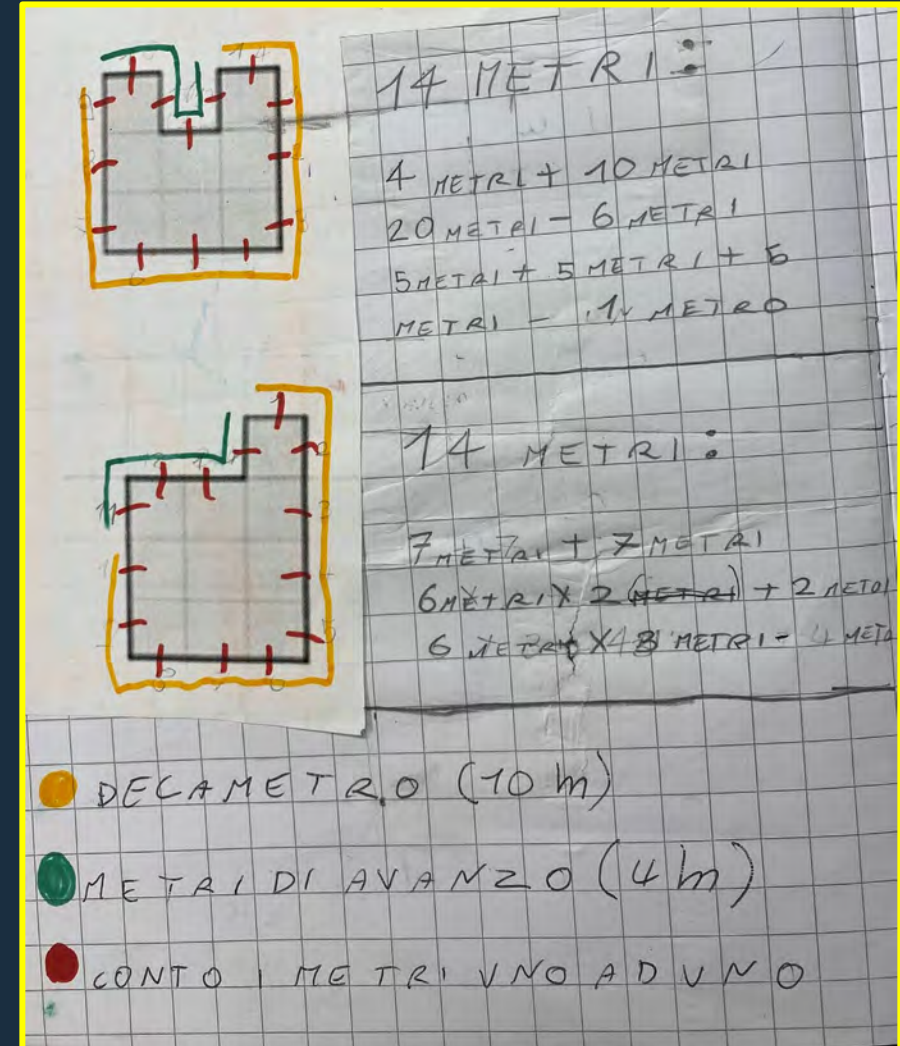 14 METRI:
4 METRI + 10 METRI
20 METRI - 6 METRI
5 METRI + 5 METRI + 5
METRI - 1 METRO
14 METRI:
7 METRI + 7 METRI
6 METRI X 2 (METRI) + 2 METRI
6 X 3 METRI - 4 METR
DECAMETRO (10 m)
METRI DI AVANZO (4 m)
CONTO I METRI UNO AD UNO